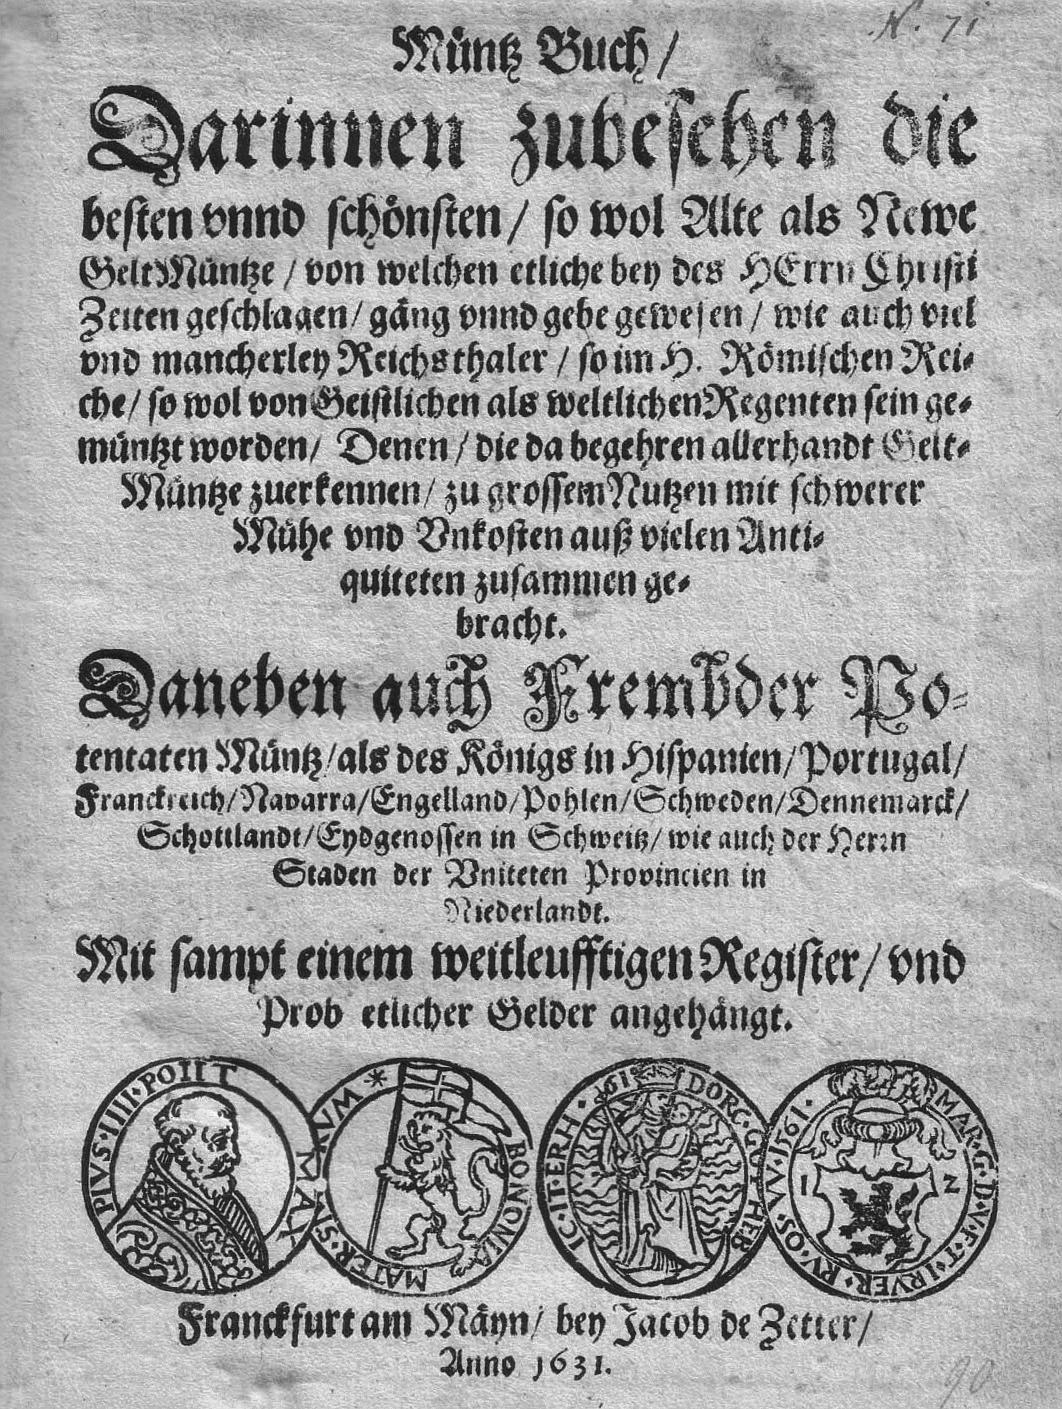 N. 71
Müntz Buch/
Darinnen zubesehen die
besten vnnd schönsten/ so wol Alte als Newe
Gelt Müntze/ von welchen etliche bey des HErrn Christi
Zeiten geschlagen/ gäng vnnd gebe gewesen/ wie auch viel
vnd mancherley Reichsthaler/ so im H. Römischen Rei-
che/ so wol von Geistlichen als weltlichen Regenten sein ge-
müntzt worden/ Denen/ die da begehren allerhandt Gelt-
Müntze zuerkennen/ zu grossem Nutzen mit schwerer
Mühe vnd Vnkosten auß vielen Anti-
quiteten zusammen ge-
bracht.
Daneben auch Frembder Po-
tentaten Müntz/ als des Königs in Hispanien/ Portugal/
Franckreich/ Navarra/ Engelland/ Pohlen/ Schweden/ Dennemarck/
Schottlandt/ Eydgenossen in Schweitz/ wie auch der Herrn
Staden der Vniteten Provincien in
Niederlandt.
Mit sampt einem weitleufftigen Register/ vnd
Prob etlicher Gelder angehängt.
PIVS·IIII·POIIT MAX
BONONIA MATER·S
IC·IT·ERH·161 DORG·GOTHEB
MAR·G·D·V·F·T·IRVER·RV·OS·VV·1561·
1 2
Franckfurt am Mäyn/ bey Jacob de Zetter/
Anno 1631.
90